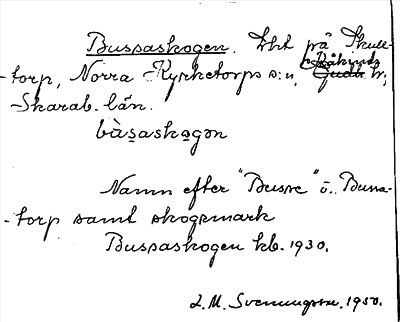 Bussaskogen. Lht på Skul-
torp, Norra Kyrketorps s:n, Kåkinds hr,
Skarab. län.
bùsaskogən
Namn efter "Busse" i Bussa-
torp samt skogsmark
Bussaskogen kb. 1930.
L. M. Svenungsson. 1950.